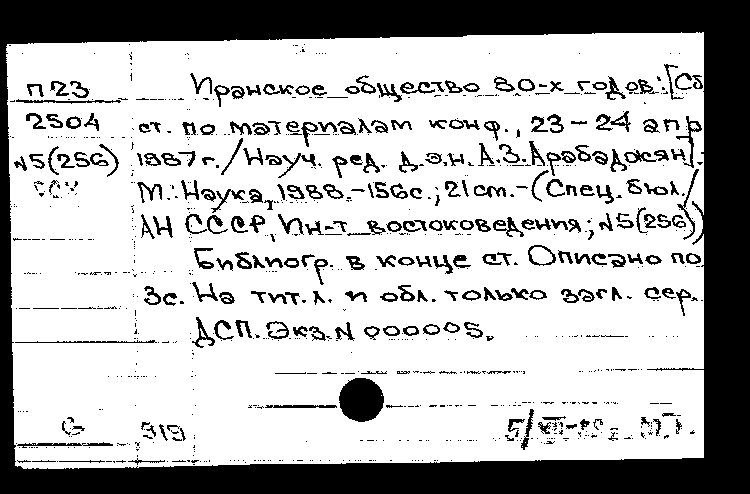 П23 Иранское общество 80-х годов: [Сб
2504 ст. по материалам конф., 23-24 апр
№5(256) 1987г. / Науч. ред. д.э.н. А.З.Арабаджян].-
М.: Наука, 1988.-156с.; 21см.-(Спец. бюл./
АН СССР, Ин-т востоковедения; №5(256))
Библиогр. в конце ст. Описано по
3с. На тит.л. и обл. только загл. сер.
ДСП. Экз. N 000005.
919